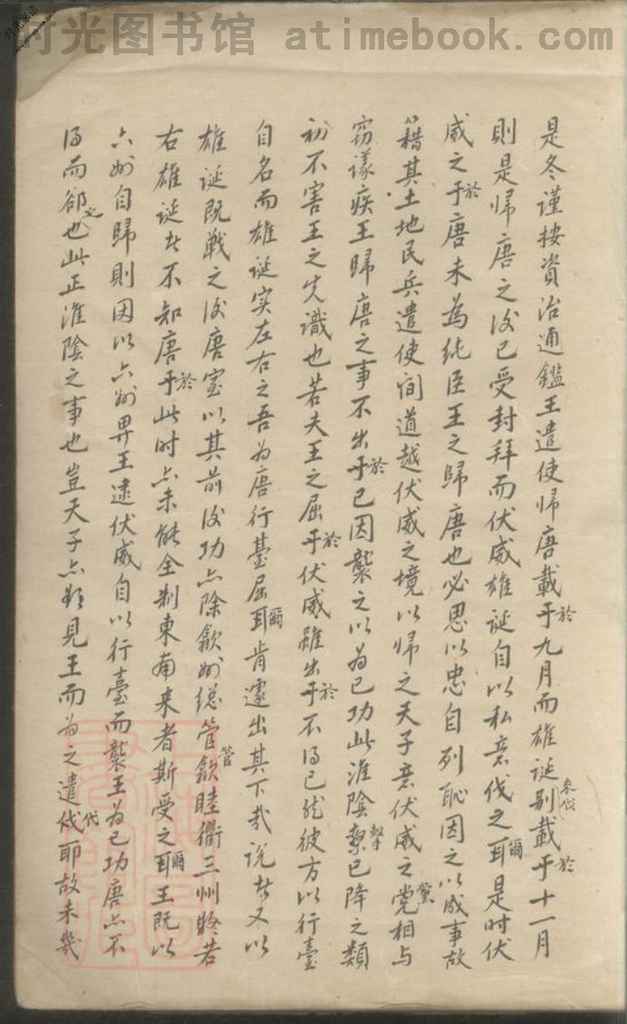 时光图书馆 atimebook.com
是冬谨按資治通鑑王遣使帰唐載于九月而雄诞别載于十一月
則是帰唐之後已受封拜而伏威雄诞自以私意伐之耳是时伏
威之于唐未為純臣王之歸唐也必思以忠自列恥因之以成事故
籍其土地民兵遣使间道越伏威之境以帰之天子意伏威之党相与
窃議疾王歸唐之事不出于已因襲之以為已功此淮陰擊已降之類
初不害王之先識也若夫王之屈于伏威雖出于不得已然彼方以行臺
自名而雄诞实左右之吾为唐行臺屈耳肯遽出其下哉说者又以
雄诞既戦之後唐室以其前後功亦除歙州総管歙睦衢三州將若
右雄诞者不知唐于此时亦未能全制東南来者斯受之耳王既以
六州自歸則因以六州畀王逮伏威自以行臺而襲王為已功唐亦不
得而郤也此正淮陰之事也豈天子亦
見王而为之遣伐耶故未幾
於
於
參傚
爾
於
黨
於
擊
於
於
爾
管
於
爾
必
代